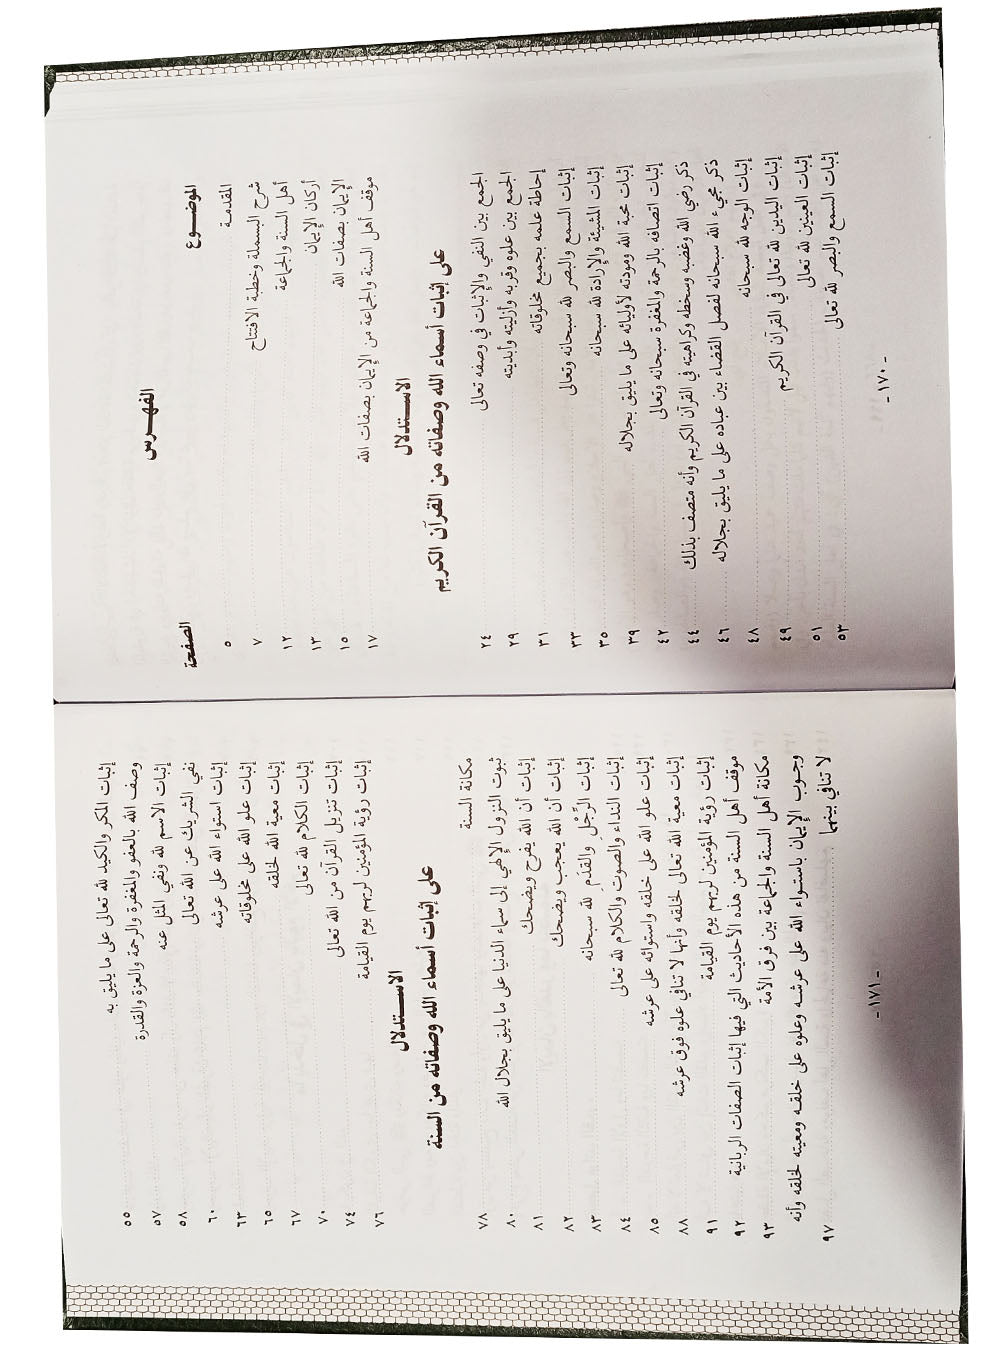 الفهــرس
الموضــوع الصفحة
المقدمـة ٥
شرح البسملة وخطبة الافتتاح ٧
أهل السنة والجماعة ١٢
أركان الإيمان ١٣
الإيمان بصفات الله ١٥
موقف أهل السنة والجماعة من الإيمان بصفات الله ١٧
الاســتدلال
على إثبات أسماء الله وصفاته من القرآن الكريم
الجمع بين النفي والإثبات في وصفه تعالى ٢٤
الجمع بين علوه وقربه وأزليته وأبديته ٢٩
إحاطة علمه بجميع مخلوقاته ٣١
إثبات السمع والبصر لله سبحانه وتعالى ٣٣
إثبات المشيئة والإرادة لله سبحانه ٣٥
إثبات محبة الله ومودته لأوليائه على ما يليق بجلاله ٣٩
إثبات اتصافه بالرحمة والمغفرة سبحانه وتعالى ٤٢
ذكر رضي الله وغضبه وسخطه وكراهيته في القرآن الكريم وأنه متصف بذلك ٤٤
ذكر مجيء الله سبحانه لفصل القضاء بين عباده على ما يليق بجلاله ٤٦
إثبات الوجه لله سبحانه ٤٨
إثبات اليدين لله تعالى في القرآن الكريم ٤٩
إثبات العينين لله تعالى ٥١
إثبات السمع والبصر لله تعالى ٥٣
- ١٧٠ -
إثبات المكر والكيد لله تعالى على ما يليق به ٥٥
وصف الله بالعفو والمغفرة والرحمة والعزة والقدرة ٥٧
إثبات الاسم لله ونفي المثل عنه ٥٨
نفي الشريك عن الله تعالى ٦٠
إثبات استواء الله على عرشه ٦٣
إثبات علو الله على مخلوقاته ٦٥
إثبات معية الله لخلقه ٦٧
إثبات الكلام لله تعالى ٧٠
إثبات تنزيل القرآن من الله تعالى ٧٤
إثبات رؤية المؤمنين لربهم يوم القيامة ٧٦
الاســتدلال
على إثبات أسماء الله وصفاته من السنة
مكانة السنة ٧٨
ثبوت النزول الإلهي إلى سماء الدنيا على ما يليق بجلال الله ٨٠
إثبات أن الله يفرح ويضحك ٨١
إثبات أن الله يعجب ويضحك ٨٢
إثبات الرِّجْل والقدَم لله سبحانه ٨٣
إثبات النداء والصوت والكلام لله تعالى ٨٤
إثبات علو الله على خلقه واستوائه على عرشه ٨٥
إثبات معية الله تعالى لخلقه وأنها لا تنافي علوه فوق عرشه ٨٨
إثبات رؤية المؤمنين لربهم يوم القيامة ٩١
موقف أهل السنة من هذه الأحاديث التي فيها إثبات الصفات الربانية ٩٢
مكانة أهل السنة والجماعة بين فرق الأمة ٩٣
وجـوب الإيمان باستواء الله على عرشـه وعلوه على خلقـه ومعيته لخلقه وأنه
لا تنافي بينهما ٩٧
- ١٧١ -